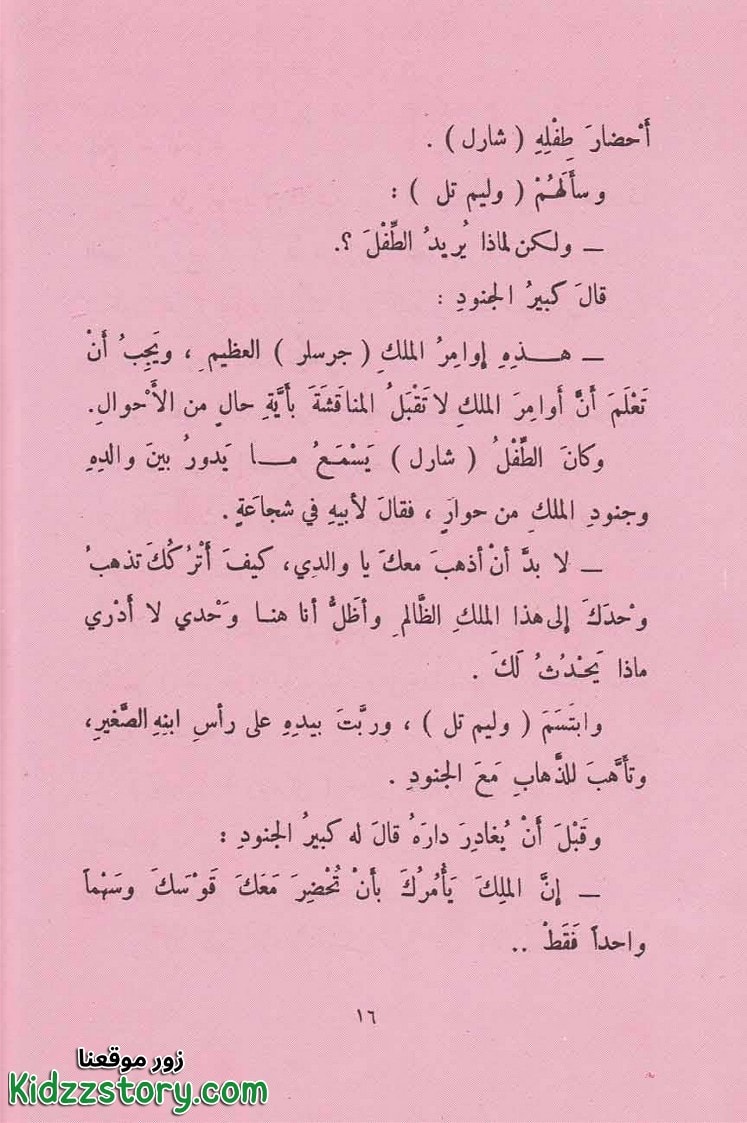 أَحْضارَ طِفْلِهِ ( شارل ) .
وسأَلَهُمْ ( وليم تل ) :
ــ ولكن لماذا يُريدُ الطِّفْلَ ؟.
قالَ كبيرُ الجنودِ :
ــ هــذِهِ إوامِرُ الملكِ ( جرسلر ) العظيمِ ، ويَجِبُ أَنْ
تَعْلَمَ أَنَّ أَوامِرَ الملكِ لا تَقْبَلُ المناقَشَةَ بأَيَّةِ حالٍ من الأَحْوالِ.
وكانَ الطِّفْلُ ( شارل ) يَسْمَعُ مــا يَدورُ بينَ والدِهِ
وجنودِ الملكِ من حوارٍ ، فقالَ لأبيهِ في شجاعَةٍ .
ــ لا بدَّ أنْ أذهبَ معكَ يا والدِي، كيفَ أَتْرُكُكَ تذهبُ
وحْدَكَ إلى هذا الملكِ الظَّالمِ وأظَلُّ أنا هنــا وَحْدي لا أَدْري
ماذا يَحْدُثُ لَكَ .
وابتَسَمَ ( وليم تل ) ، وربَّتَ بيدِهِ على رأسِ ابنِهِ الصَّغيرِ،
وتأَهَّبَ للذَّهابِ مَعَ الجنودِ .
وقَبْلَ أَنْ يُغادِرَ دارَهُ قالَ له كبيرُ الجنودِ :
ــ إنَّ الملِكَ يَأْمُرُكَ بأَنْ تُحْضِرَ مَعَكَ قَوْسَكَ وسَهْماً
واحداً فَقَطْ ..
١٦
زور موقعنا
Kidzzstory.com